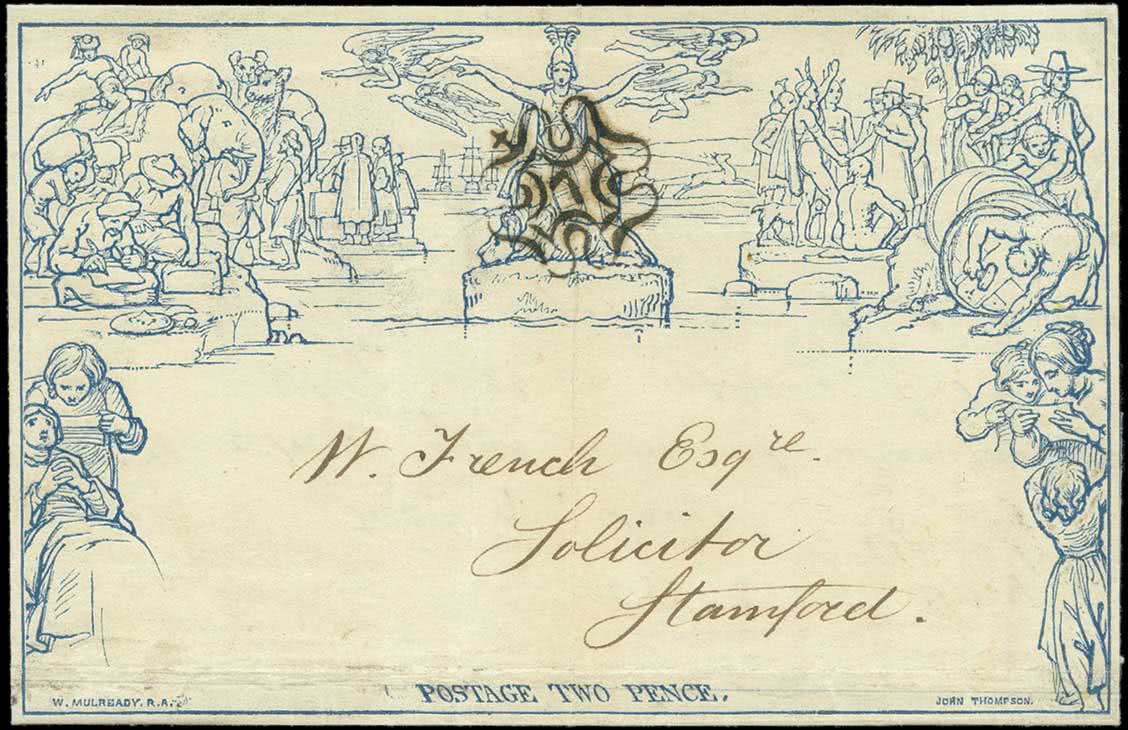 W. French Esqre.
Solicitor
Stamford.
POSTAGE TWO PENCE.
W. MULREADY. R.A.
JOHN THOMPSON.